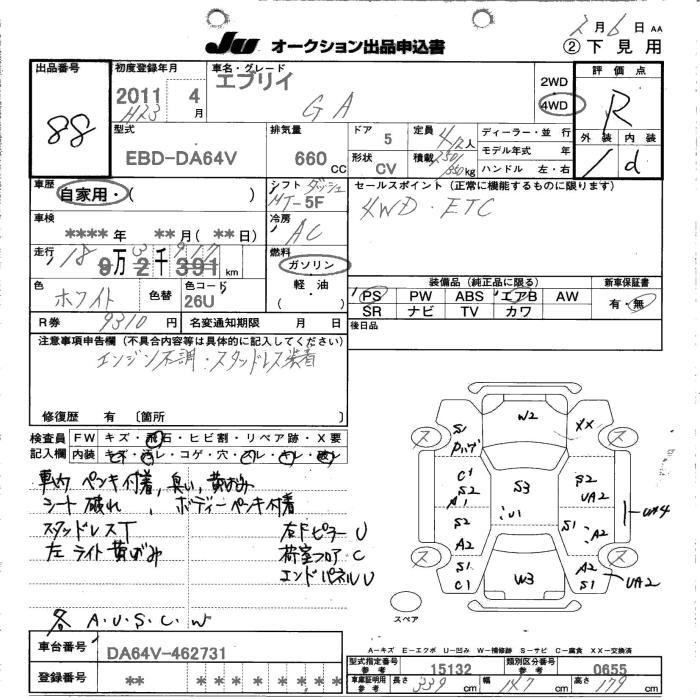 2月6日 AA
Ju オークション出品申込書 ②下見用
出品番号 88
初度登録年月 2011 H23 4月
車名・グレード エブリイ GA
2WD 4WD
評価点 R
外装 内装 d
型式 EBD-DA64V
排気量 660CC
ドア 5
形状 CV
定員 4/2人
積載 250/350kg
ディーラー・並行
モデル年式 年
ハンドル 左・右
車歴 自家用・( )
シフト ダッシュ MT-5F
セールスポイント(正常に機能するものに限ります)
4WD・ETC
車検 ****年 **月(**日)
冷房 AC
走行 9万2千391km
燃料 ガソリン 軽油 ( )
色 ホワイト 色替 色コード 26U
装備品(純正品に限る) 新車保証書
PS PW ABS エアB AW 有・無
SR ナビ TV カワ
R券 9310円 名変通知期限 月 日
後日品
注意事項申告欄(不具合内容等は具体的に記入してください)
エンジン不調・スタッドレス装着
修復歴 有 〔箇所
検査員記入欄 FW キズ・飛石・ヒビ割・リペア跡・X要
内装 キズ・汚レ・コゲ・穴・スレ・キレ・破レ
車内ペンキ付着,臭い,黄ばみ
シート破れ,ボディーペンキ付着
スタッドレスT 右Dピラー U
左ライト黄ばみ 荷室フロア C
エンドパネル U
各 A.U.S.C.W
W2 XX
S1 Pハゲ
ス ス
C1 S2 A1 S3 S2 UA2
U1 UA4
S2 S1 A2
A2
ス ス
S1 C1 W3 A2 S1 UA2
スペア
A-キズ E-エクボ U-凹み W-補修跡 S-サビ C-腐食 XX-交換済
車台番号 DA64V-462731
登録番号 ** * * * * * * * *
型式指定番号 参考 15132 類別区分番号 参考 0655
車庫証明用 参考 長さ 339cm 幅 147cm 高さ 179cm